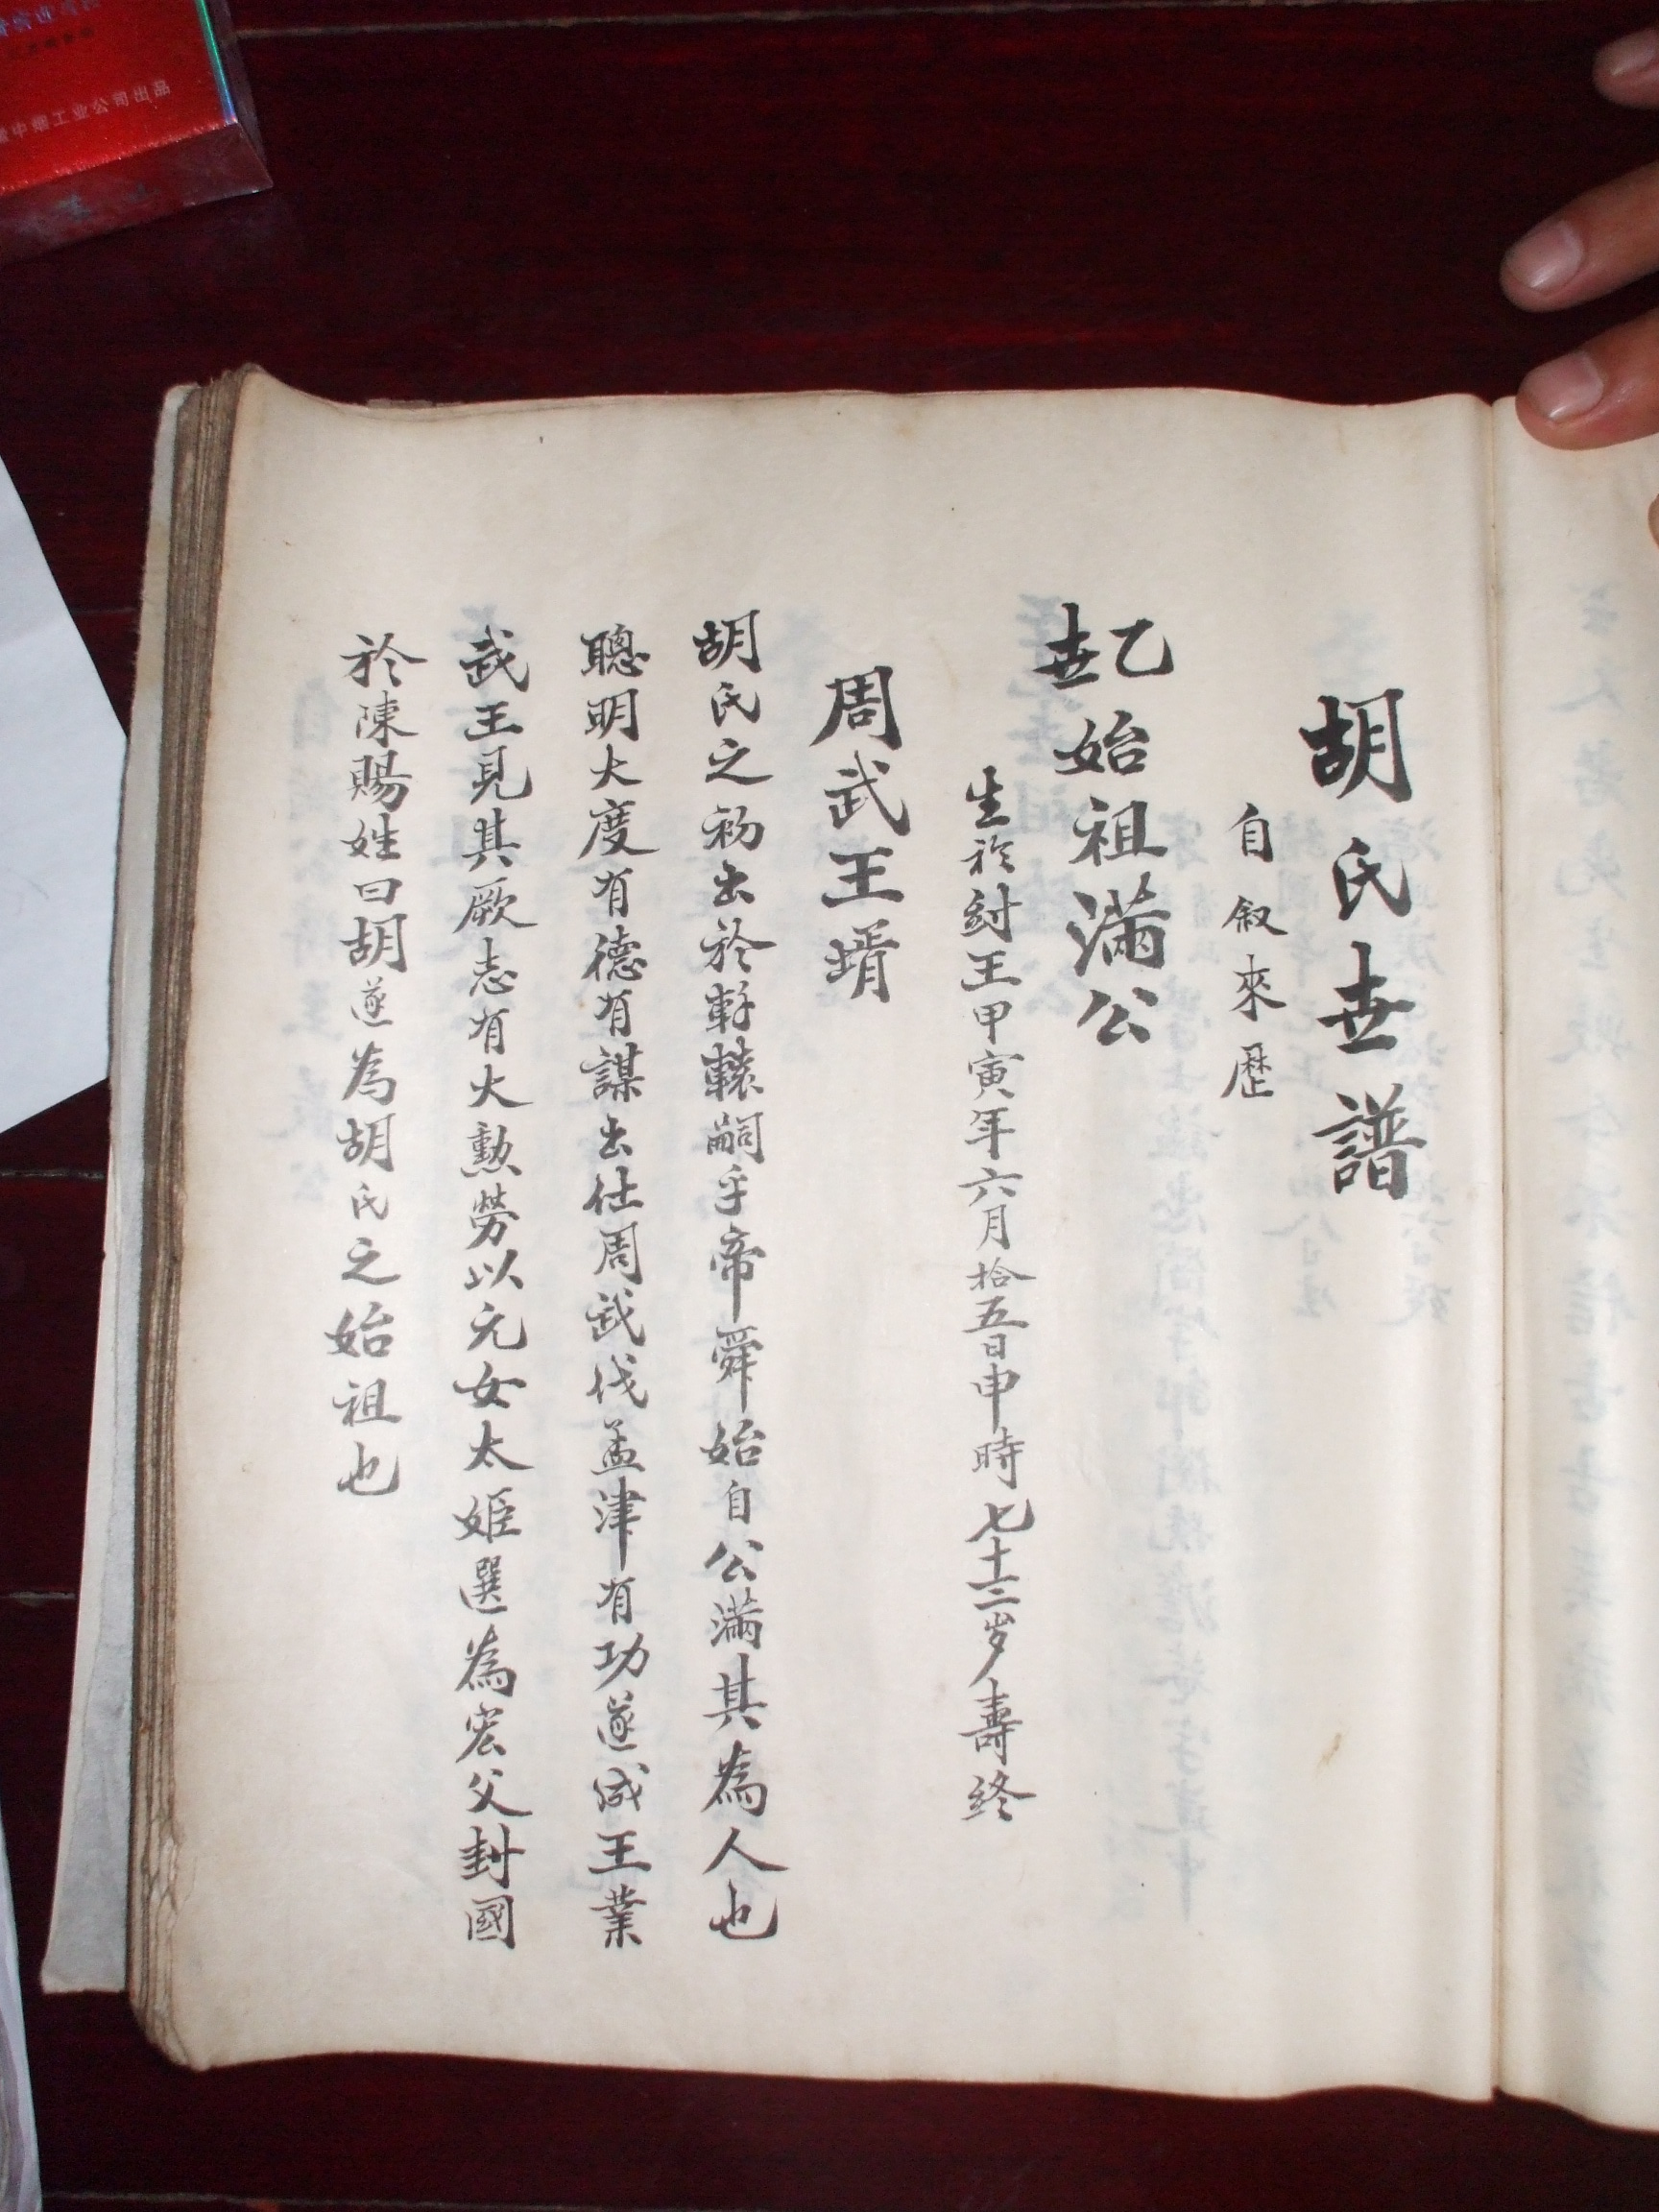 胡氏世譜
自叙來歷
乙世 始祖滿公
生於紂王甲寅年六月拾五日申時七十二岁壽終
周武王壻
胡氏之初出於軒轅嗣乎帝舜始自公滿其為人也
聰明大度有德有謀出仕周武伐孟津有功遂成王業
武王見其厥志有大勲勞以元女太姬選為宏父封國
於陳賜姓曰胡遂為胡氏之始祖也
中烟工业公司出品